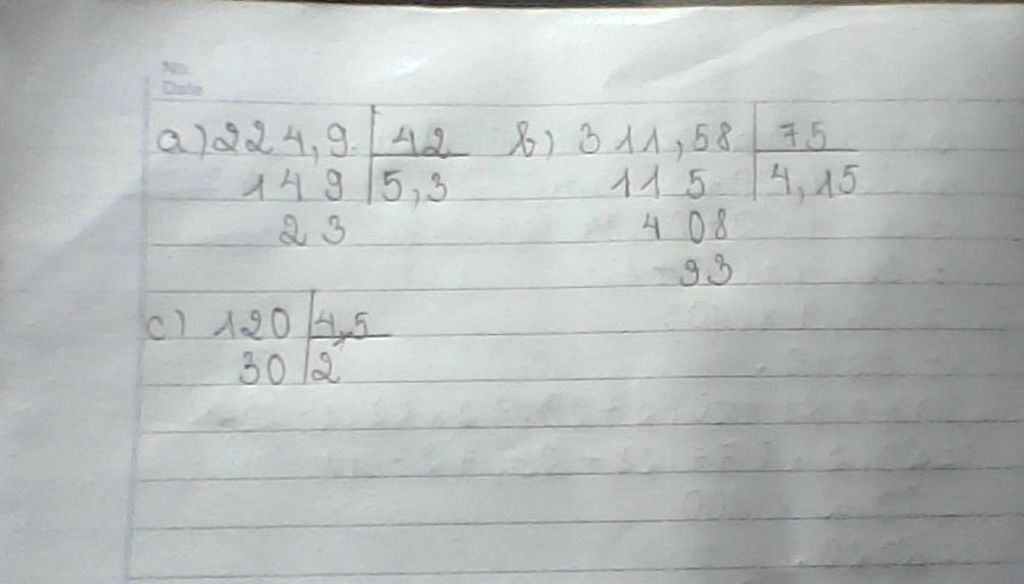 No.
Date
a) 224,9 | 42 b) 311,58 | 75
149 | 5,3 115 | 4,15
23 408
93
c) 120 | 4,5
30 | 2